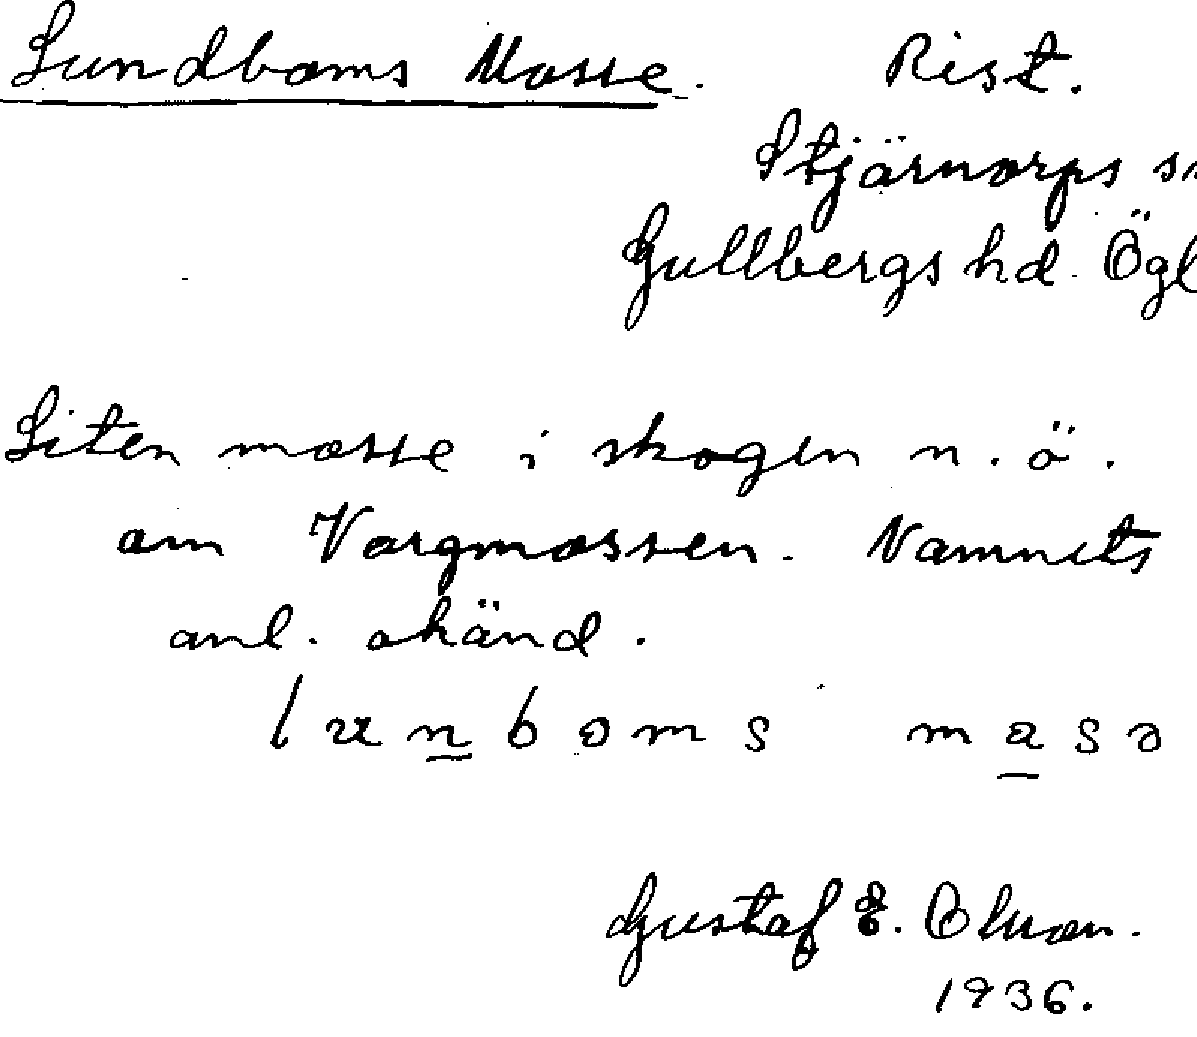 Lundboms Mosse. Rist.
Stjärnorps sn
Gullbergs hd. Ögl
Liten mosse i skogen n. ö.
om Vargmossen. Namnets
anl. okänd.
lunboms masə
Gustaf E. Olsson.
1936.